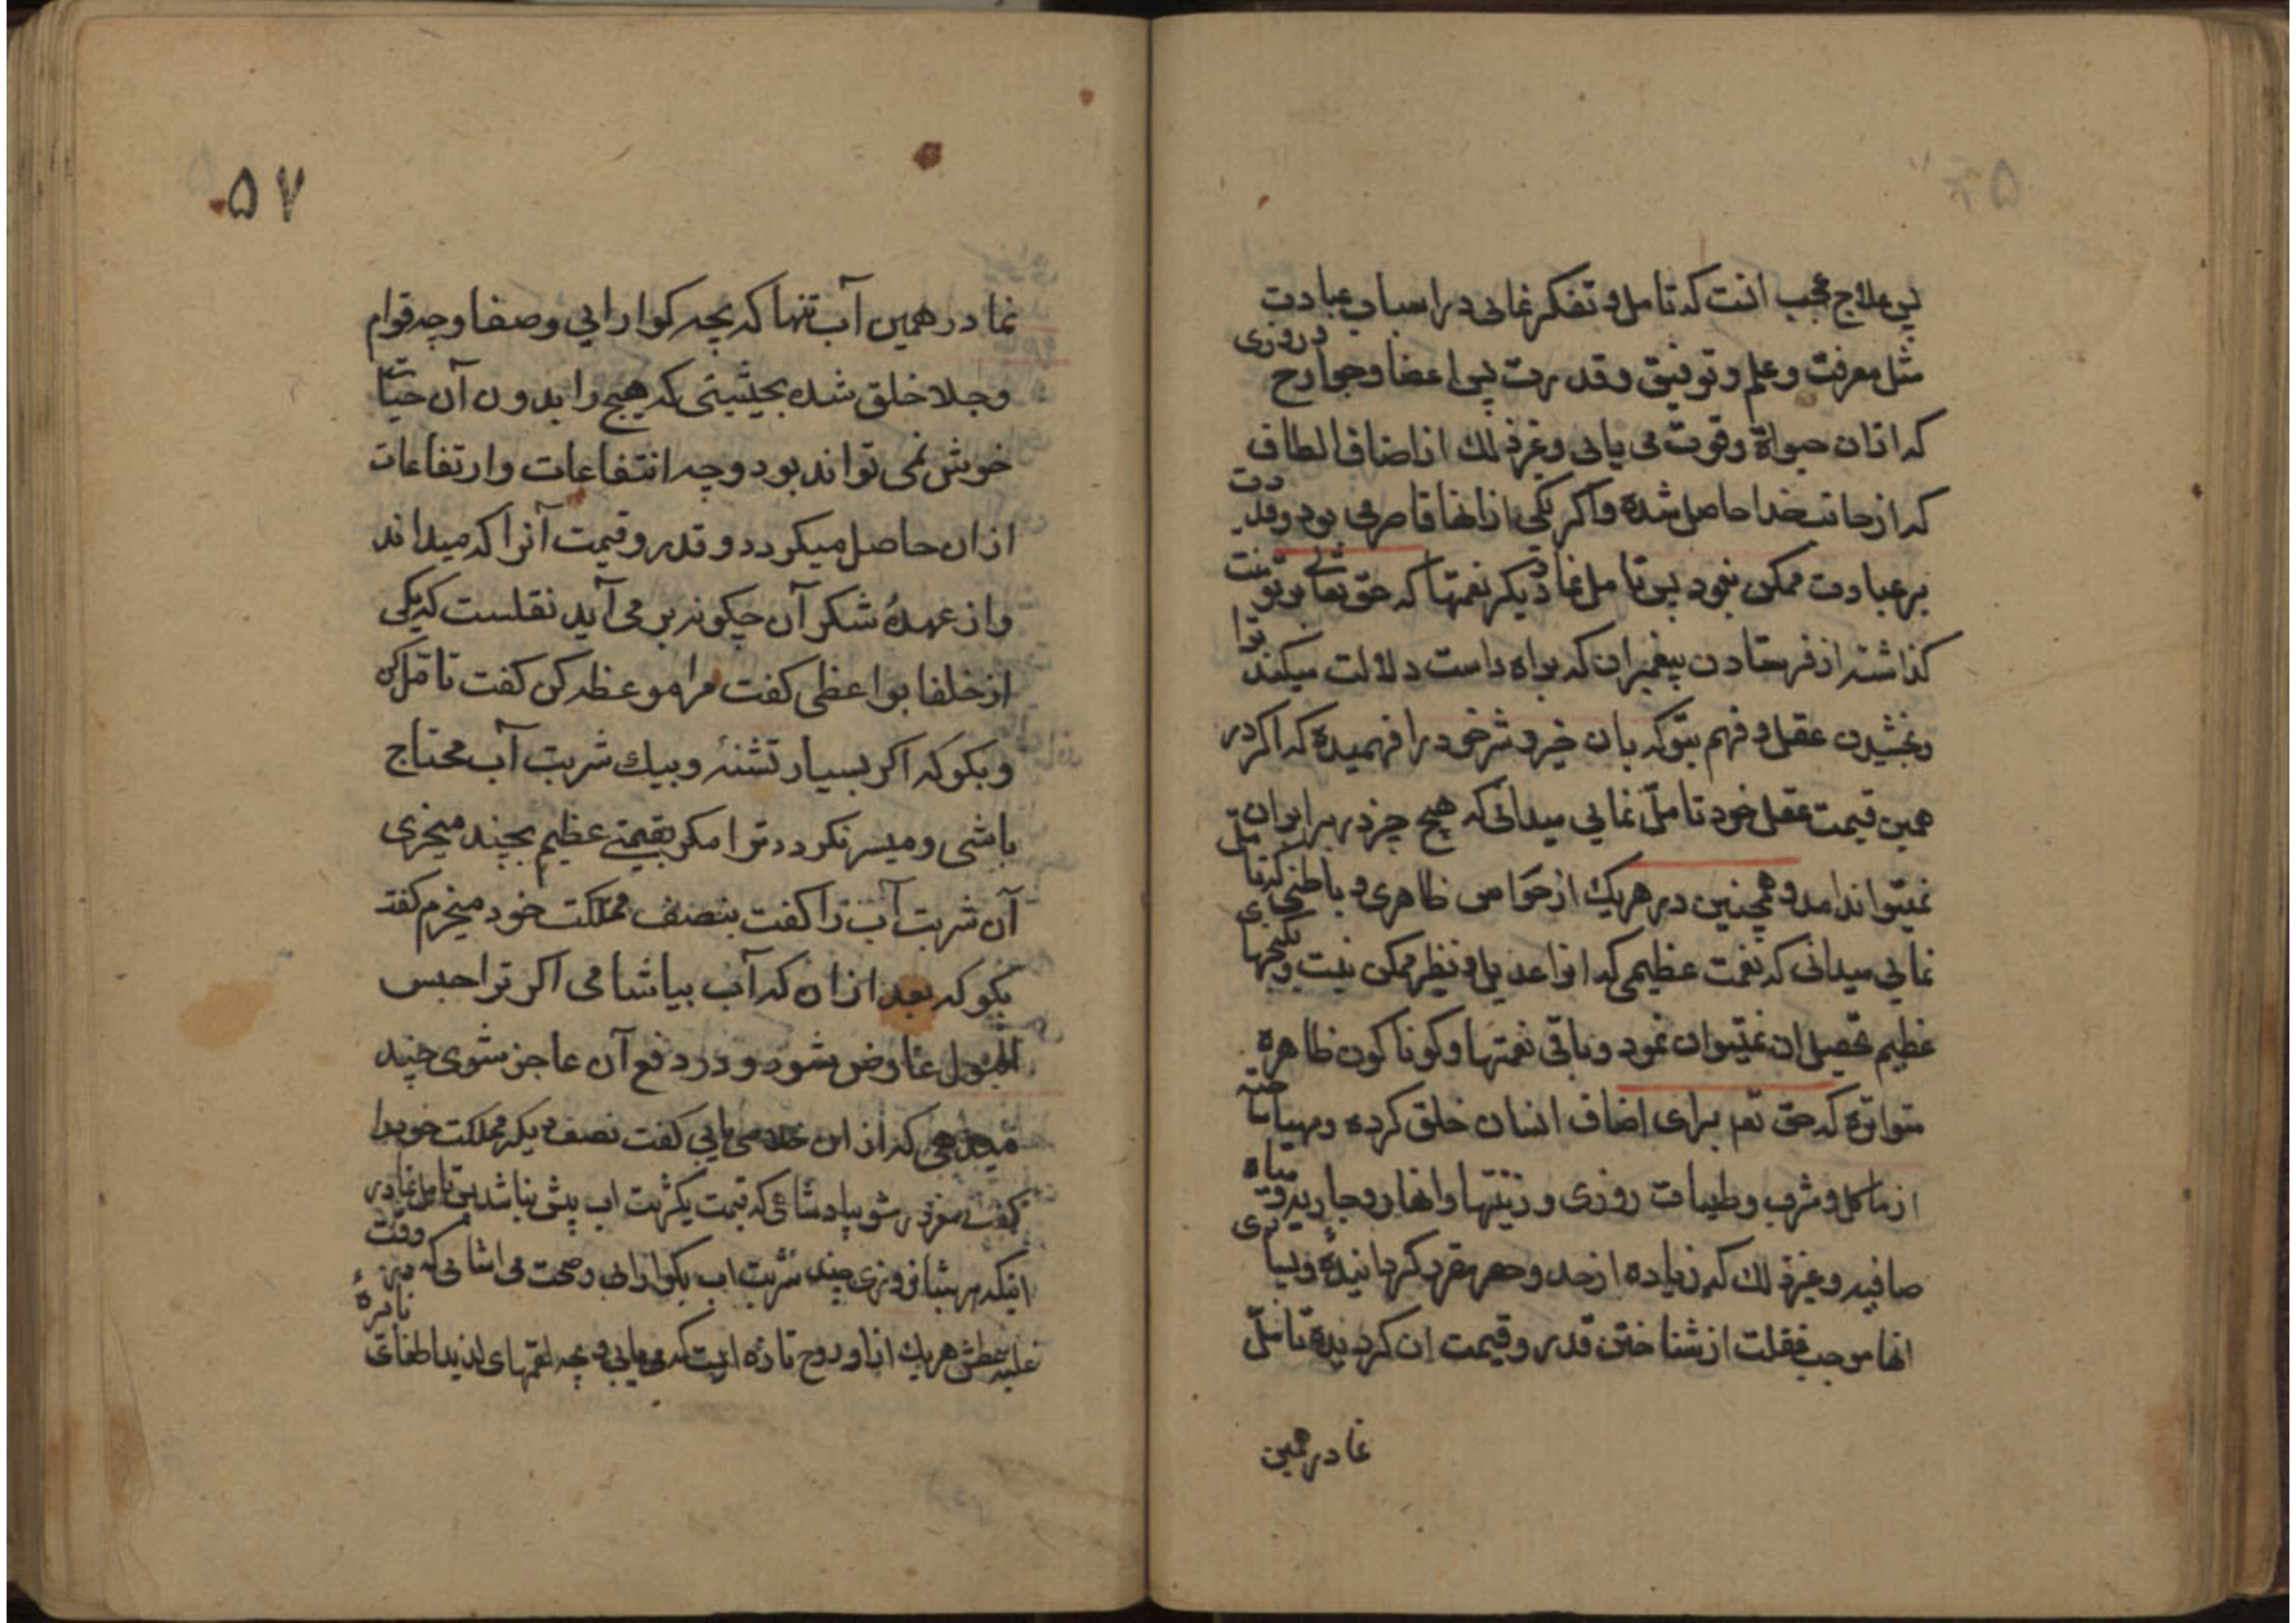 پس علاج عجب انست که تامل و تفکر نمائی در اسباب عبادت
مثل معرفت و علم و توفیق و قدرت پس اعضا و جوارح در روزی
که ازان حیوة وقوت می یابی و غیرذلک از اضاف الطاف
که از جانب خدا حاصل شده و اکر یکی از انها قاصر می بود و قدرت
بر عبادت ممکن نبود پس تامل نما در دیکر نعمتها که حق تعالی بر تو منت
کذاشته از فرستادن پیغمبران که براه راست دلالت میکنند ترا
و بخشیدن عقل و فهم بتو که بان خیر و شر خود را فهمیده که اکر در
همین قیمت عقل خود تامل نمایی میدانی که هیچ چیز در برابر ان
نمیتواند امد و همچنین در هر یک از حواس ظاهری و باطنی که تامل
نمایی میدانی که نعمت عظیمی که انرا عدیل و نظیر ممکن نیست و بکنجهای
عظیم تحصیل ان نمیتوان نمود و باقی نعمتها و کوناکون ظاهره
متواتره که حق تعم برای اضاف انسان خلق کرده و مهیا ساخته
از ماکل و مشرب و طیبات روزی و زینتها و انهار و جاریه و میاه
صافیه و غیر ذلک که زیاده از حد و حصر مقرر کردانیده و بسیاری
انها موجب غفلت از شناختن قدر و قیمت ان کردیده تامل
نما در همین
۵۷
نما در همین آب تنها که بچه کوارایی و صفا و چه قوام
و جلا خلق شده بحیثیتی که هیچ را بدون آن حیات
خوش نمی تواند بود و چه انتفاعات و ارتفاعات
ازان حاصل میکردد و قدر و قیمت آنرا که میداند
و از عهدهٔ شکر آن چکونه بر می آید نقلست که یکی
از خلفا بواعظی کفت مرا موعظه کن کفت تامل کن
و بکو که اکر بسیار تشنهٔ و بیک شربت آب محتاج
باشی و میسر نکردد ترا مکر بقیمتی عظیم بچند میخری
آن شربت آب را کفت بنصف مملکت خود میخرم کفت
بکو که بعد ازان که آب بیاشامی اکر ترا حبس
البول عارض شود و در دفع آن عاجز شوی چند
میدهی که از این خلاصی یابی کفت نصف دیکر مملکت خود را
کفت مغرور مشو بپادشاهی که قیمت یکشربت اب بیش نباشد پس تامل نما در
اینکه هر شبانروزی چند شربت اب بکوارایی و صحت می اشامی که در وقت
غلبه عطش هر یک ازاو روح تازه ایست که می یابی و بچه لقمهای لذیذ اطفای نایرهٔ